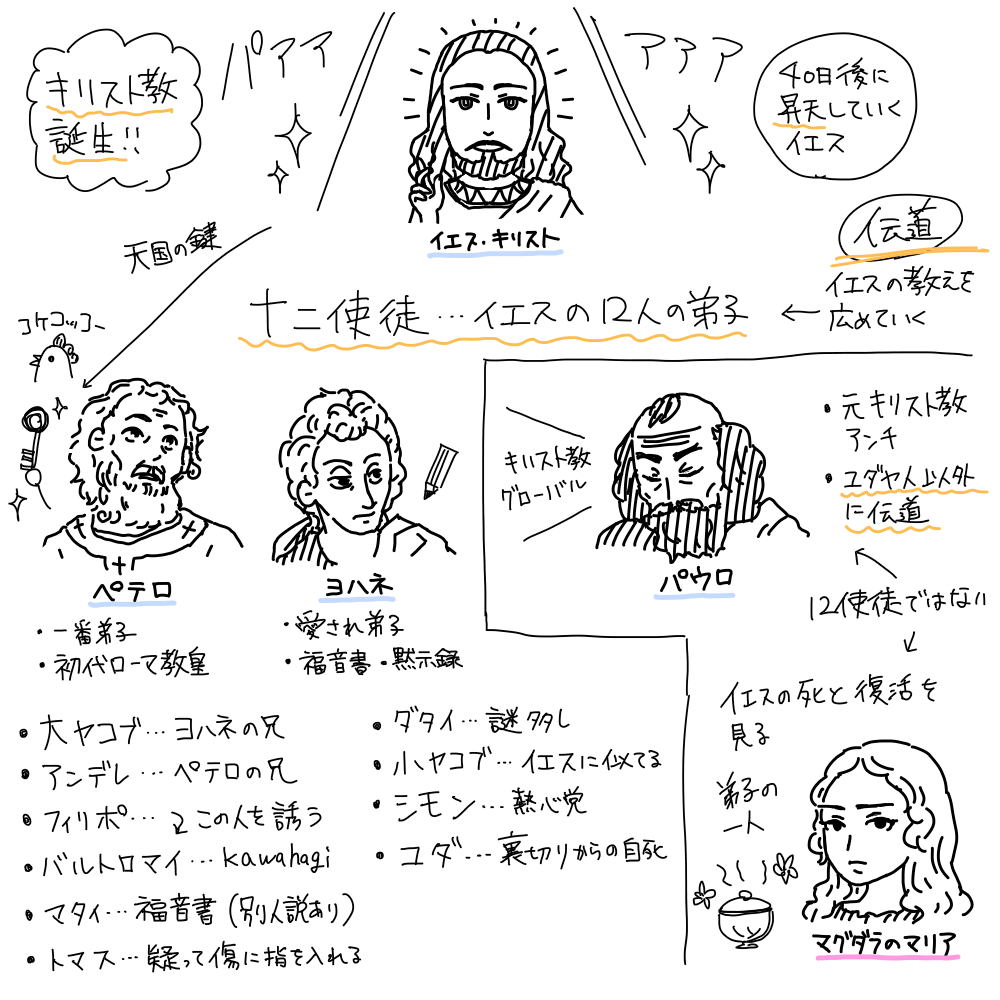 キリスト教
誕生!!
パアアア
アアア
40日後に
昇天していく
イエス
イエス・キリスト
天国の鍵
伝道
イエスの教えを
広めていく
十二使徒…イエスの12人の弟子
コケコッコー
ペテロ
・一番弟子
・初代ローマ教皇
ヨハネ
・愛され弟子
・福音書・黙示録
キリスト教
グローバル
パウロ
・元キリスト教
アンチ
・ユダヤ人以外
に伝道
12使徒ではない
・大ヤコブ…ヨハネの兄
・アンデレ…ペテロの兄
・フィリポ…この人を誘う
・バルトロマイ…kawahagi
・マタイ…福音書(別人説あり)
・トマス…疑って傷に指を入れる
・ダタイ…謎多し
・小ヤコブ…イエスに似てる
・シモン…熱心党
・ユダ…裏切りからの自死
イエスの死と復活を
見る
弟子の
一人
マグダラのマリア